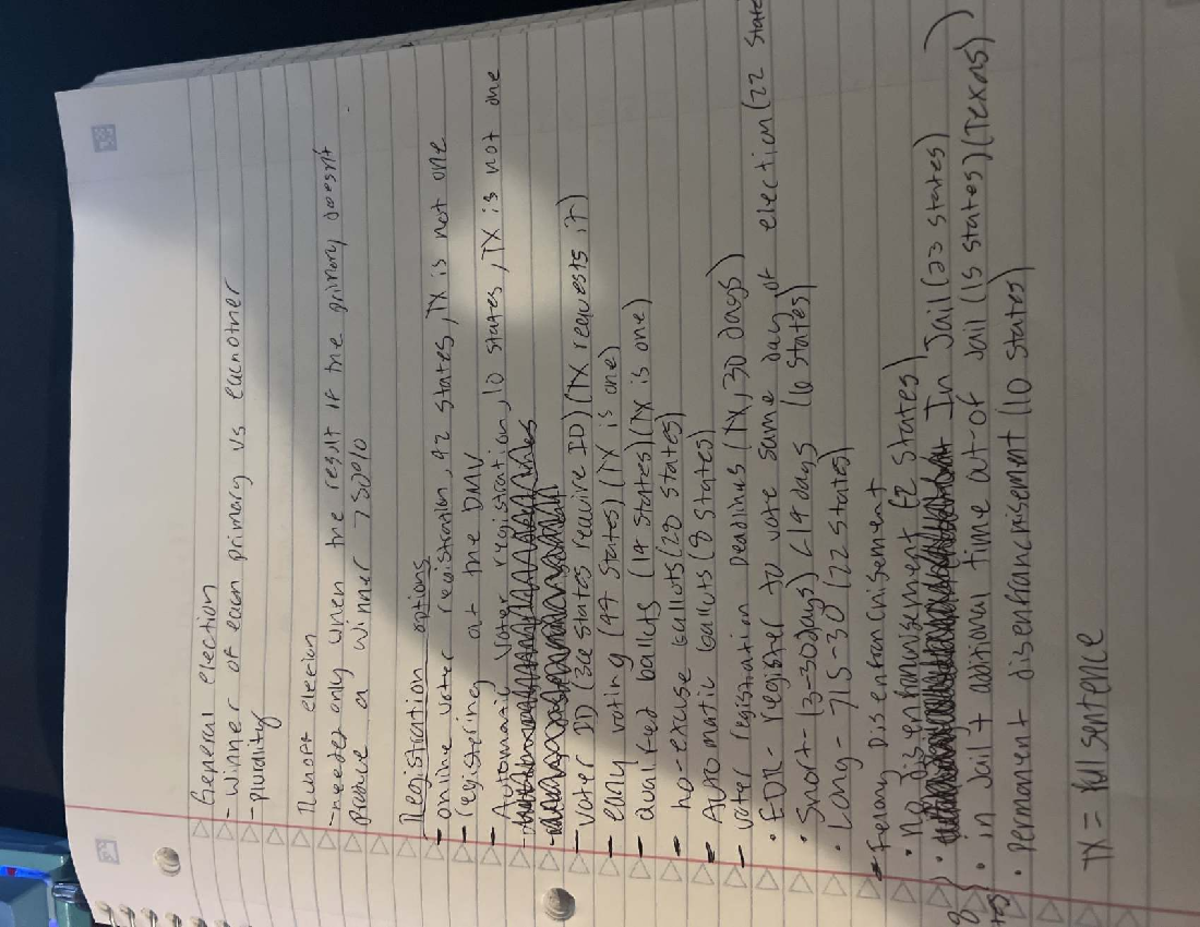 General election
- Winner of each primary vs eachother
- Plurality
Runoff election
- needed only when the result if the primary doesn't
produce a winner > 50%
Registration options
- online voter registration, 42 states, TX is not one
- registering at the DMV
- Automatic voter registration, 10 states, TX is not one
- Voter ID (36 states require ID) (TX requests it)
- early voting (44 states) (TX is one)
- qualified ballots (14 states) (TX is one)
- no-excuse ballots (28 states)
- Automatic ballots (8 states)
- voter registration Deadlines (TX, 30 days)
• EDR - register to vote same day of election (22 state
• Short - (3-30 days) < 14 days (6 states)
• Long - > 15-30 (22 states)
- Felony Disenfranchisement
• No disenfranchisement (2 states)
• In Jail (23 states)
• in Jail + additional time out-of Jail (15 states) (Texas)
• Permanent disenfranchisement (10 states)
TX = full sentence